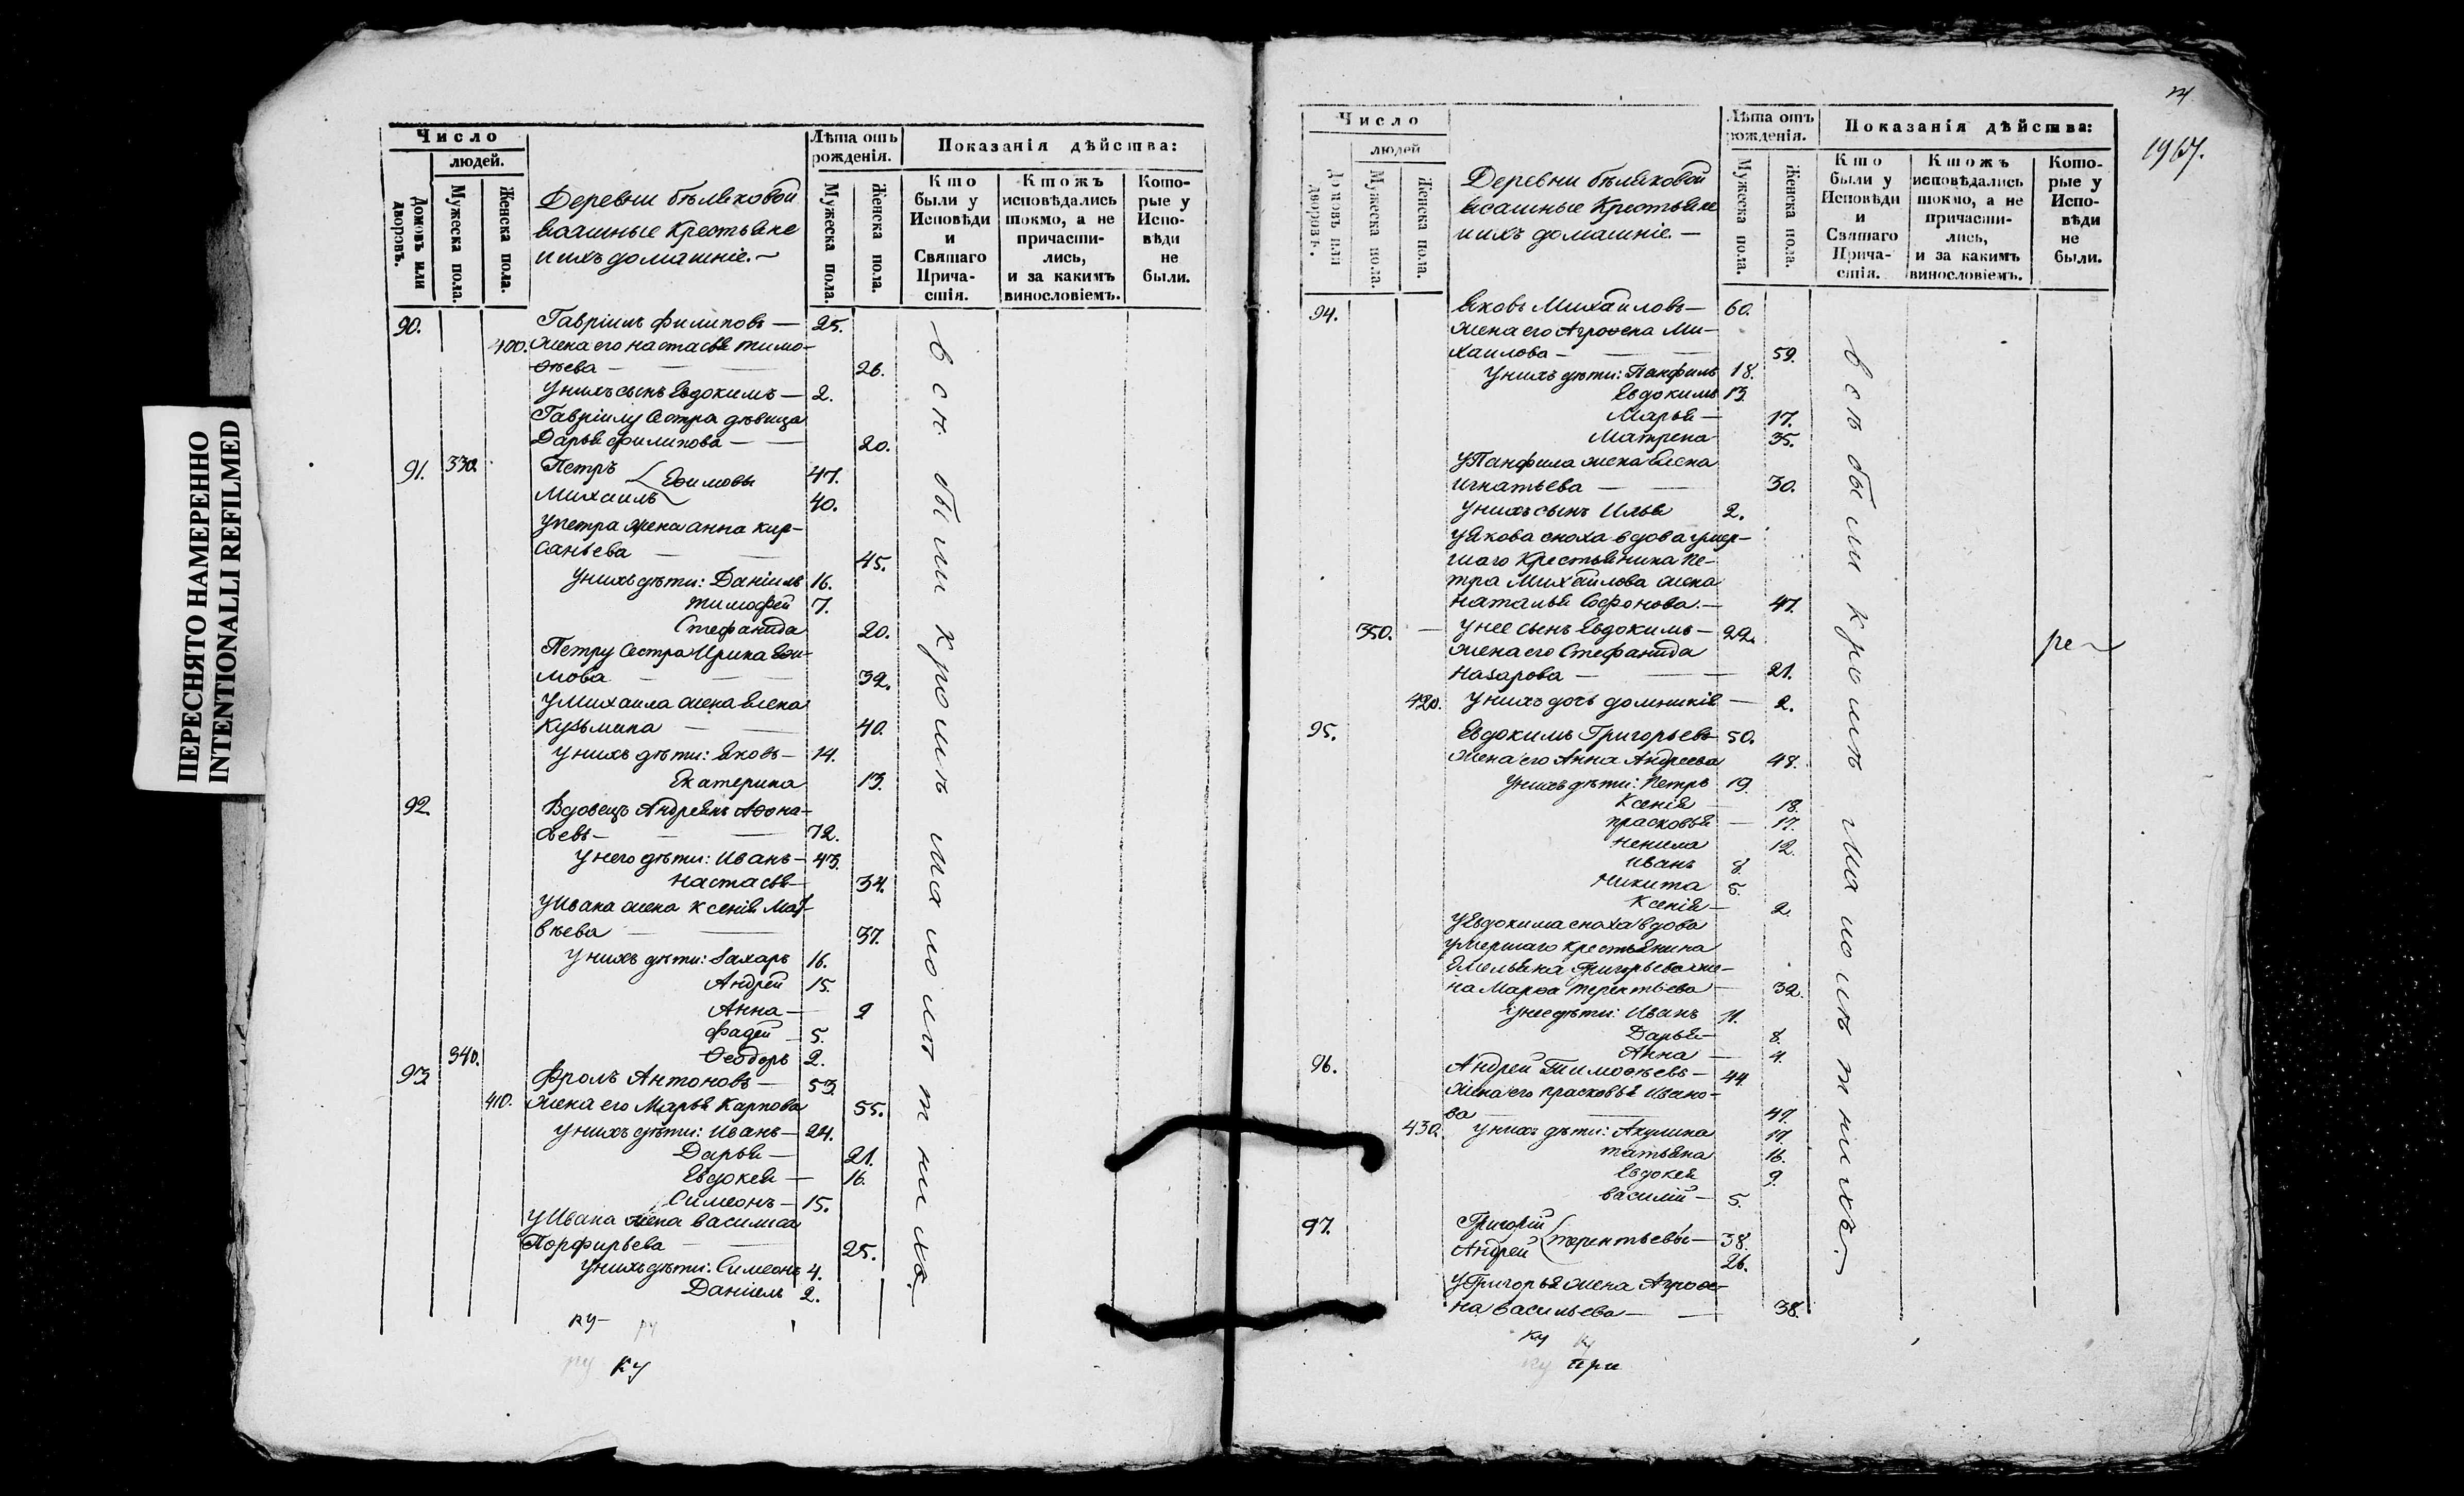 ПЕРЕСНЯТО НАМЕРЕННО
INTENTIONALLI REFILMED
Число
людей.
Домовъ или дворовъ.
Мужеска пола.
Женска пола.
Деревни бѣляковой
ясашные Крестьяне
и ихъ домашніе.
Лѣта отъ
рожденія.
Мужеска пола.
Женска пола.
Показанія дѣйства:
Кто
были у
Исповѣди
и
Святаго
Прича-
стія.
Ктожъ
исповѣдались
токмо, а не
причасти-
лись,
и за какимъ
винословіемъ.
Кото-
рые у
Испо-
вѣди
не
были.
90. Гавріилъ филиповъ — 25.
400. жена его настасья тимо-
ѳѣева — 26.
у нихъ сынъ Евдокимъ — 2.
Гавріилу сестра дѣвица
Дарья филипова — 20.
91. 330. Петръ 47.
Михаилъ Еѳимовы 40.
у петра жена анна кир-
саньева — 45.
у нихъ дѣти: Даніилъ 16.
тимофей 7.
Стефанида 20.
Петру сестра Ирина Еѳи-
мова — 32.
у Михаила жена Елена
Кузьмина — 40.
у нихъ дѣти: яковъ — 14.
Екатерина 13.
92. Вдовецъ Андреянъ Аѳона-
сьевъ — 72.
у него дѣти: Иванъ — 43.
настасья — 34.
у Ивана жена ксенія Мат-
вѣева — 37.
у нихъ дѣти: Захаръ 16.
Андрей 15.
Анна — 9
фадей 5.
340. Ѳеодоръ 2.
93 фролъ Антоновъ — 53.
410. жена его Марья Карпова 55.
у нихъ дѣти: Иванъ — 24.
Дарья — 21.
Евдокея — 16.
Симеонъ — 15.
у Ивана жена василиса
Порфирьева 25.
у нихъ дѣти: Симеонъ 4.
Даніилъ 2.
всѣ были кромѣ малолѣтнихъ.
ку
ку
1967.
Число
людей
Домовъ или дворовъ.
Мужеска пола.
Женска пола.
Деревни бѣляковой
ясашные Крестьяне
и ихъ домашніе. —
Лѣта отъ
рожденія.
Мужеска пола.
Женска пола.
Показанія дѣйства:
Кто
были у
Исповѣди
и
Святаго
Прича-
стія.
Ктожъ
исповѣдались
токмо, а не
причасти-
лись,
и за какимъ
винословіемъ.
Кото-
рые у
Испо-
вѣди
не
были.
94. яковъ Михаиловъ — 60.
жена его Агроѳена Ми-
хаилова — 59.
у нихъ дѣти: Панфилъ 18.
Евдокимъ 13.
Марья — 17.
Матрена 35.
у Панфила жена Елена
игнатьева — 30.
у нихъ сынъ Илья 2.
у якова сноха вдова умер-
шаго крестьянина пе-
тра Михайлова жена
наталья Софонова. — 47.
350. — у нее сынъ Евдокимъ — 22.
жена его Стефанида
назарова — 21.
420. у нихъ дочь домникія — 2.
95. Евдокимъ Григорьевъ 50.
жена его Анна Андреева 48.
у нихъ дѣти: Петръ 19.
Ксенія 18.
прасковья — 17.
ненила 12.
иванъ 8.
никита 5.
Ксенія — 2.
у Евдокима сноха вдова
умершаго крестьянина
Емельяна Григорьева же-
на Марѳа терентьева — 32.
у нее дѣти: Иванъ 11.
Дарья — 8.
Анна — 4.
96. Андрей Тимоѳѣевъ — 44
жена его прасковья ивано-
ва — 47.
430. у нихъ дѣти: Акулина 17.
татьяна 16.
Евдокея 9.
василій — 5.
97. Григорій
Андрей терентьевы — 38.
26.
у Григорья жена Агроѳе-
на васильева — 38.
всѣ были кромѣ малолѣтнихъ.
ре
ку
ку при